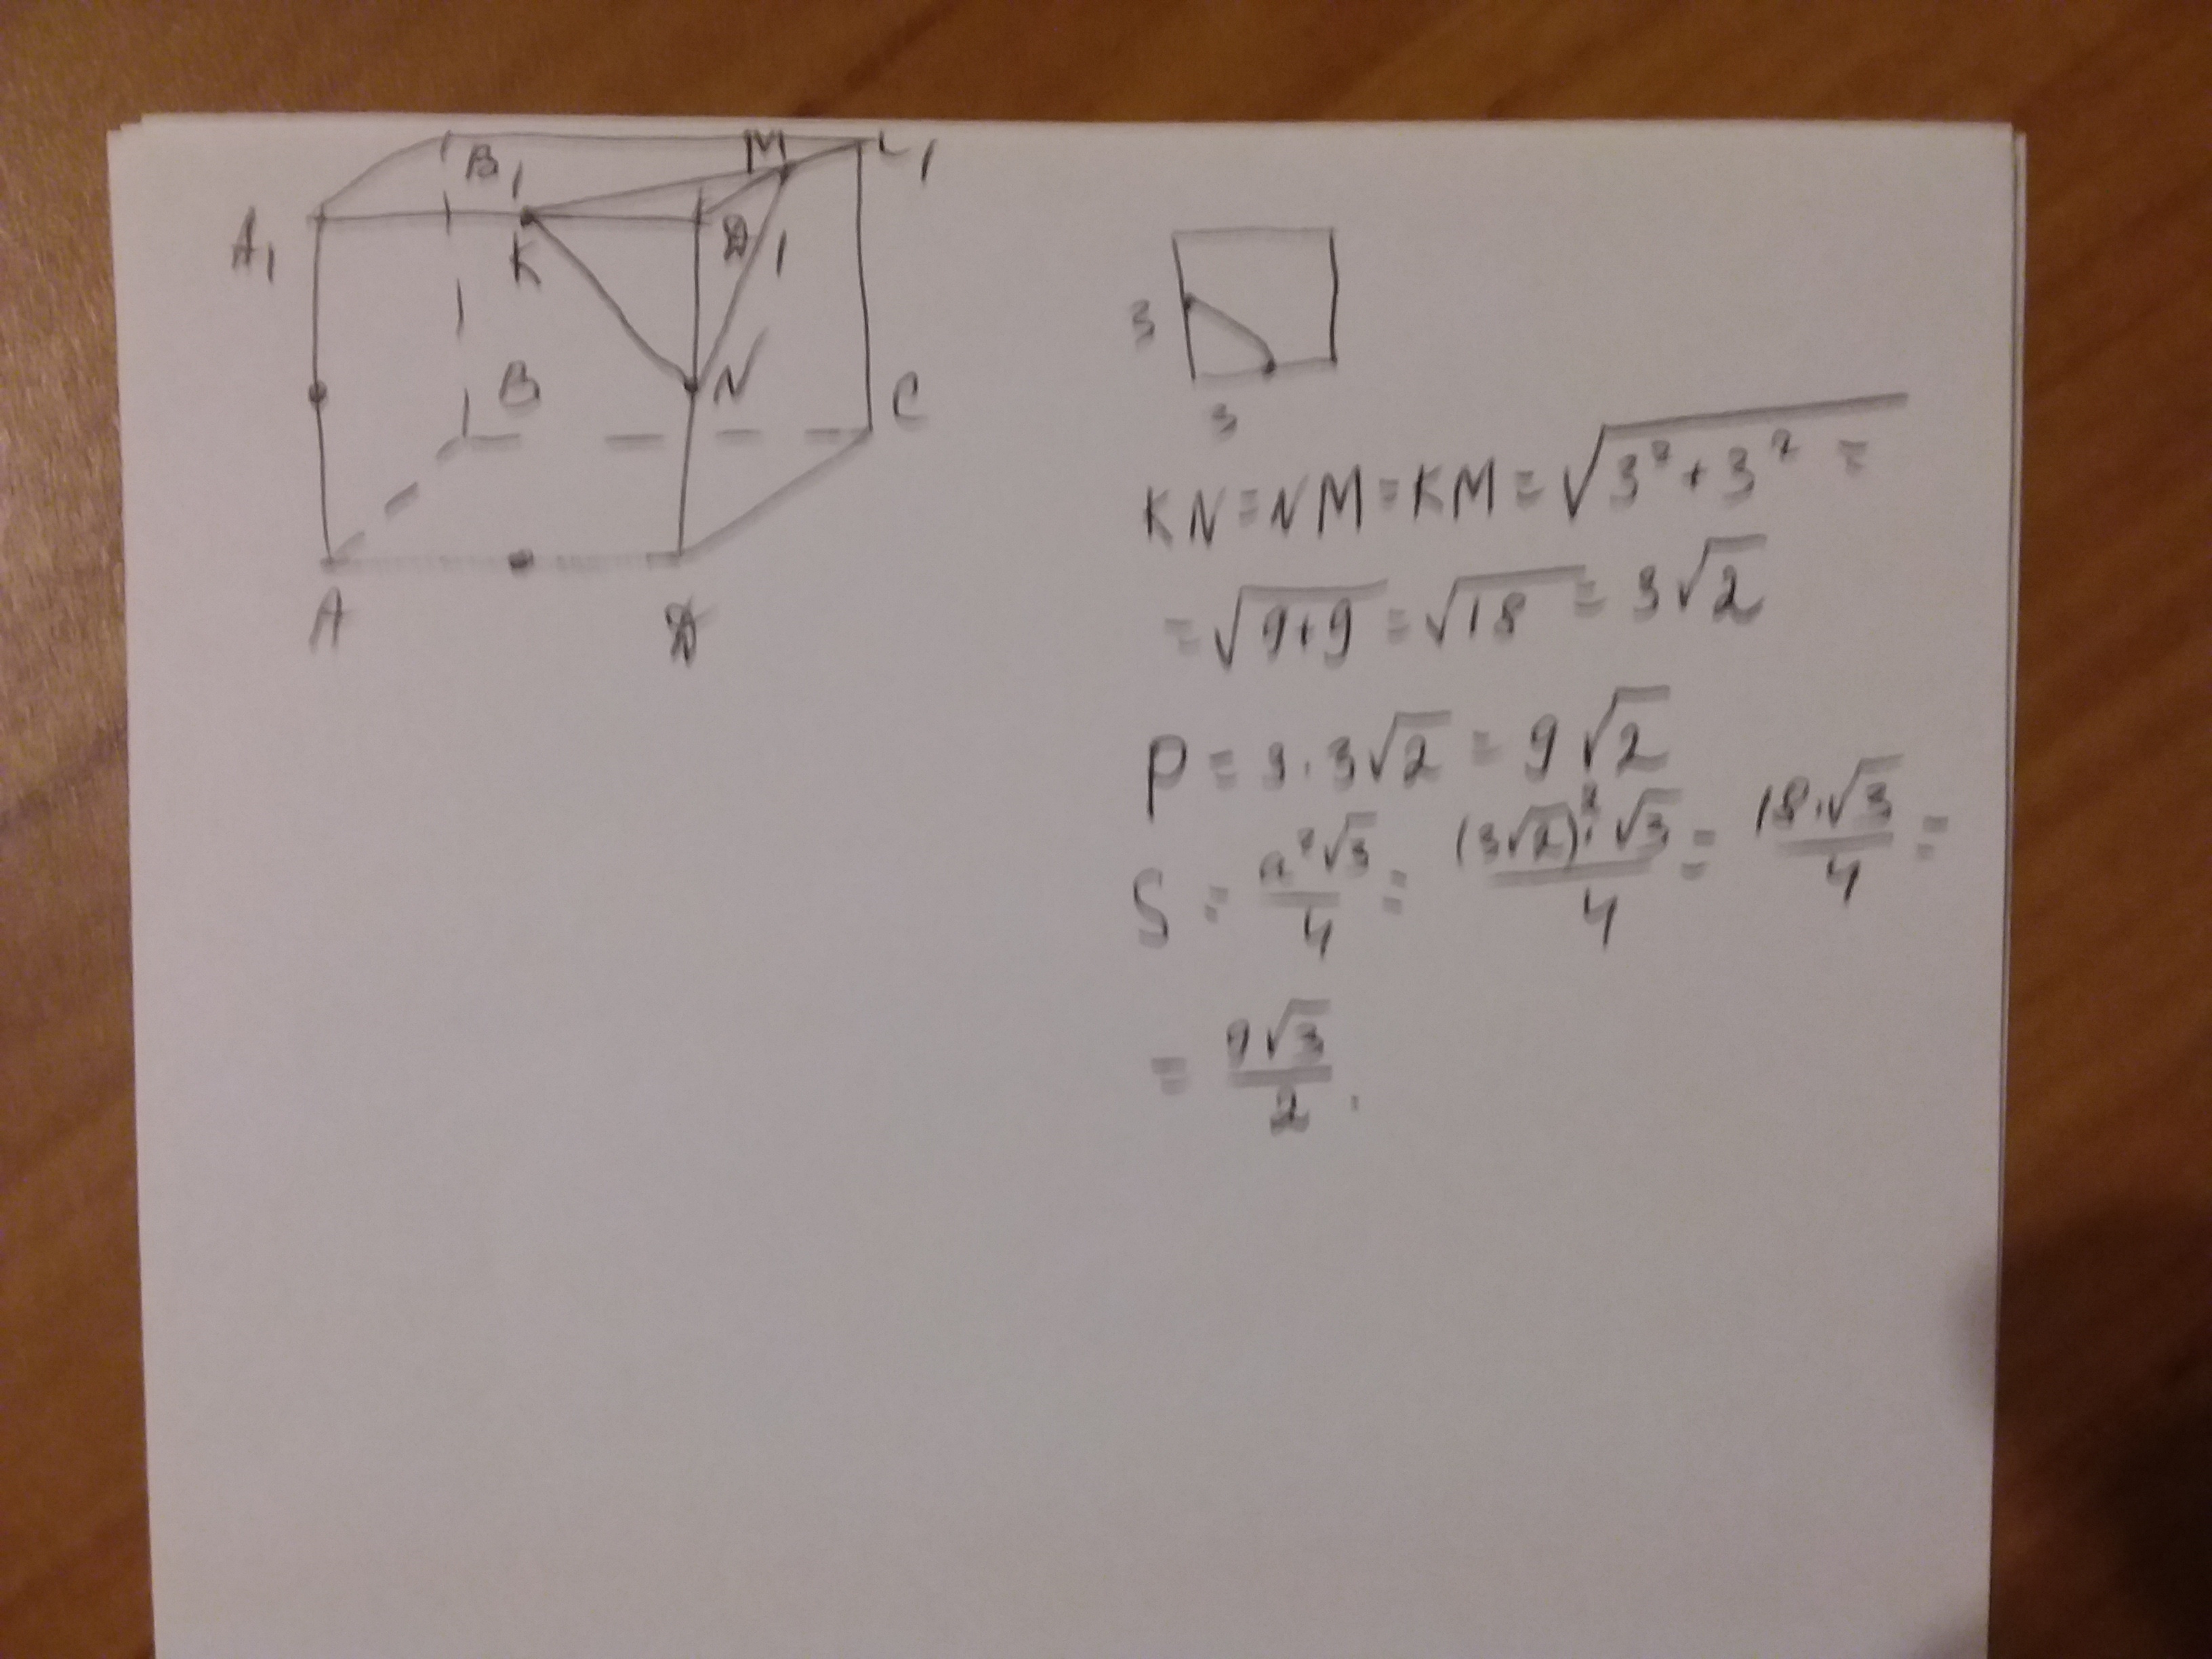 B₁ M C₁
A₁ K D₁
N
B C
A D
3
3
KN = NM = KM = √(3² + 3²) =
= √(9+9) = √18 = 3√2
P = 3 · 3√2 = 9√2
S = a²√3/4 = (3√2)² · √3/4 = 18 · √3/4 =
= 9√3/2 .